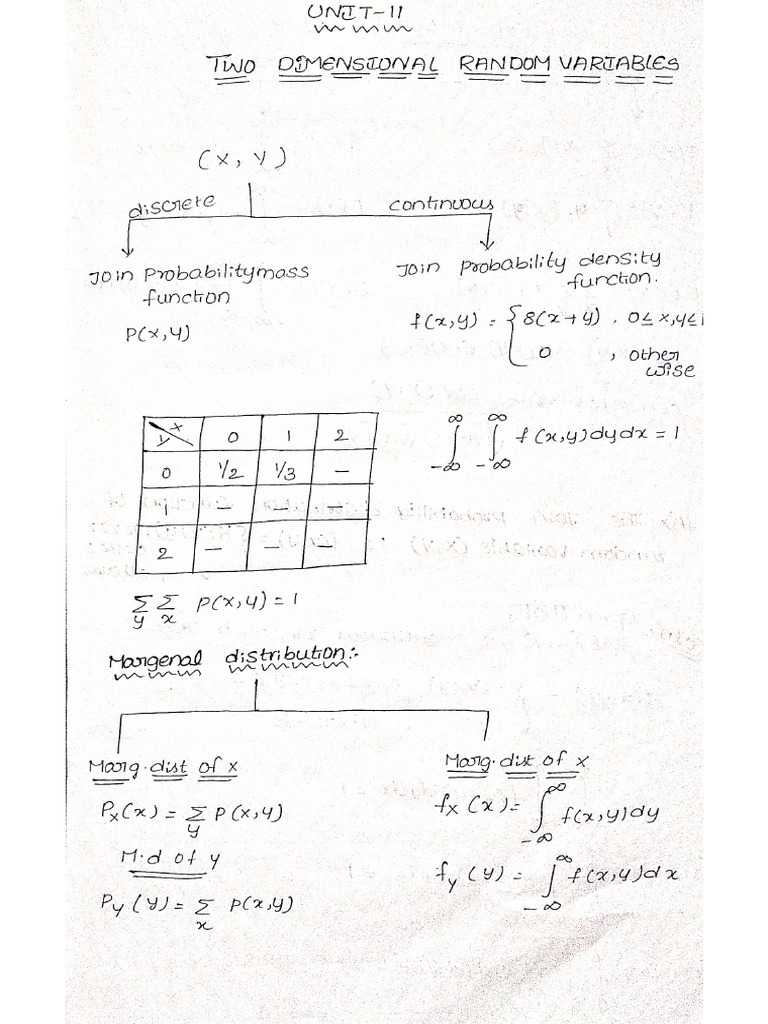 UNIT-II
TWO DIMENSIONAL RANDOM VARIABLES
(X, Y)
discrete continuous
Join Probability mass function
P(x,y)
Join probability density function.
f(x,y) = { 8(x+y) , 0≤x,y≤1
0 , other wise
Y X 0 1 2
0 1/2 1/3 –
1 – –
2 – – –
∫_{-∞}^{∞} ∫_{-∞}^{∞} f(x,y)dydx = 1
Σ_y Σ_x P(x,y) = 1
Margenal distribution:-
Marg. dist of x
P_X(x) = Σ_y P(x,y)
M.d of y
P_Y(y) = Σ_x P(x,y)
Marg. dist of x
f_X(x) = ∫_{-∞}^{∞} f(x,y)dy
f_Y(y) = ∫_{-∞}^{∞} f(x,y)dx